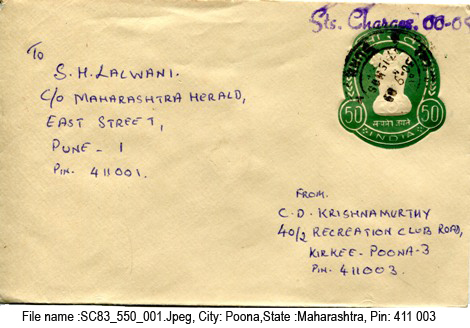 Sts. Charges. 00-05
To
S. H. LALWANI.
C/o MAHARASHTRA HERALD,
EAST STREET,
PUNE - 1
PIN. 411001.
50 50
सत्यमेव जयते
INDIA
FROM.
C. D. KRISHNAMURTHY
40/2 RECREATION CLUB ROAD,
KIRKEE - POONA-3
PIN- 411003.
File name :SC83_550_001.Jpeg, City: Poona,State :Maharashtra, Pin: 411 003